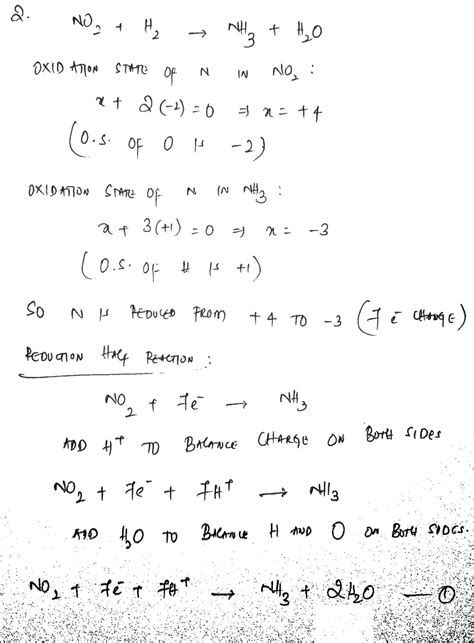 2. NO₂ + H₂ → NH₃ + H₂O
OXIDATION STATE OF N IN NO₂ :
x + 2(-2) = 0 ⇒ x = +4
(O.S. OF O IS -2)
OXIDATION STATE OF N IN NH₃ :
x + 3(+1) = 0 ⇒ x = -3
(O.S. OF H IS +1)
SO N IS REDUCED FROM +4 TO -3 (7 e⁻ CHANGE)
REDUCTION HALF REACTION :
NO₂ + 7e⁻ → NH₃
ADD H⁺ TO BALANCE CHARGE ON BOTH SIDES
NO₂ + 7e⁻ + 7H⁺ → NH₃
ADD H₂O TO BALANCE H AND O ON BOTH SIDES.
NO₂ + 7e⁻ + 7H⁺ → NH₃ + 2H₂O — ①